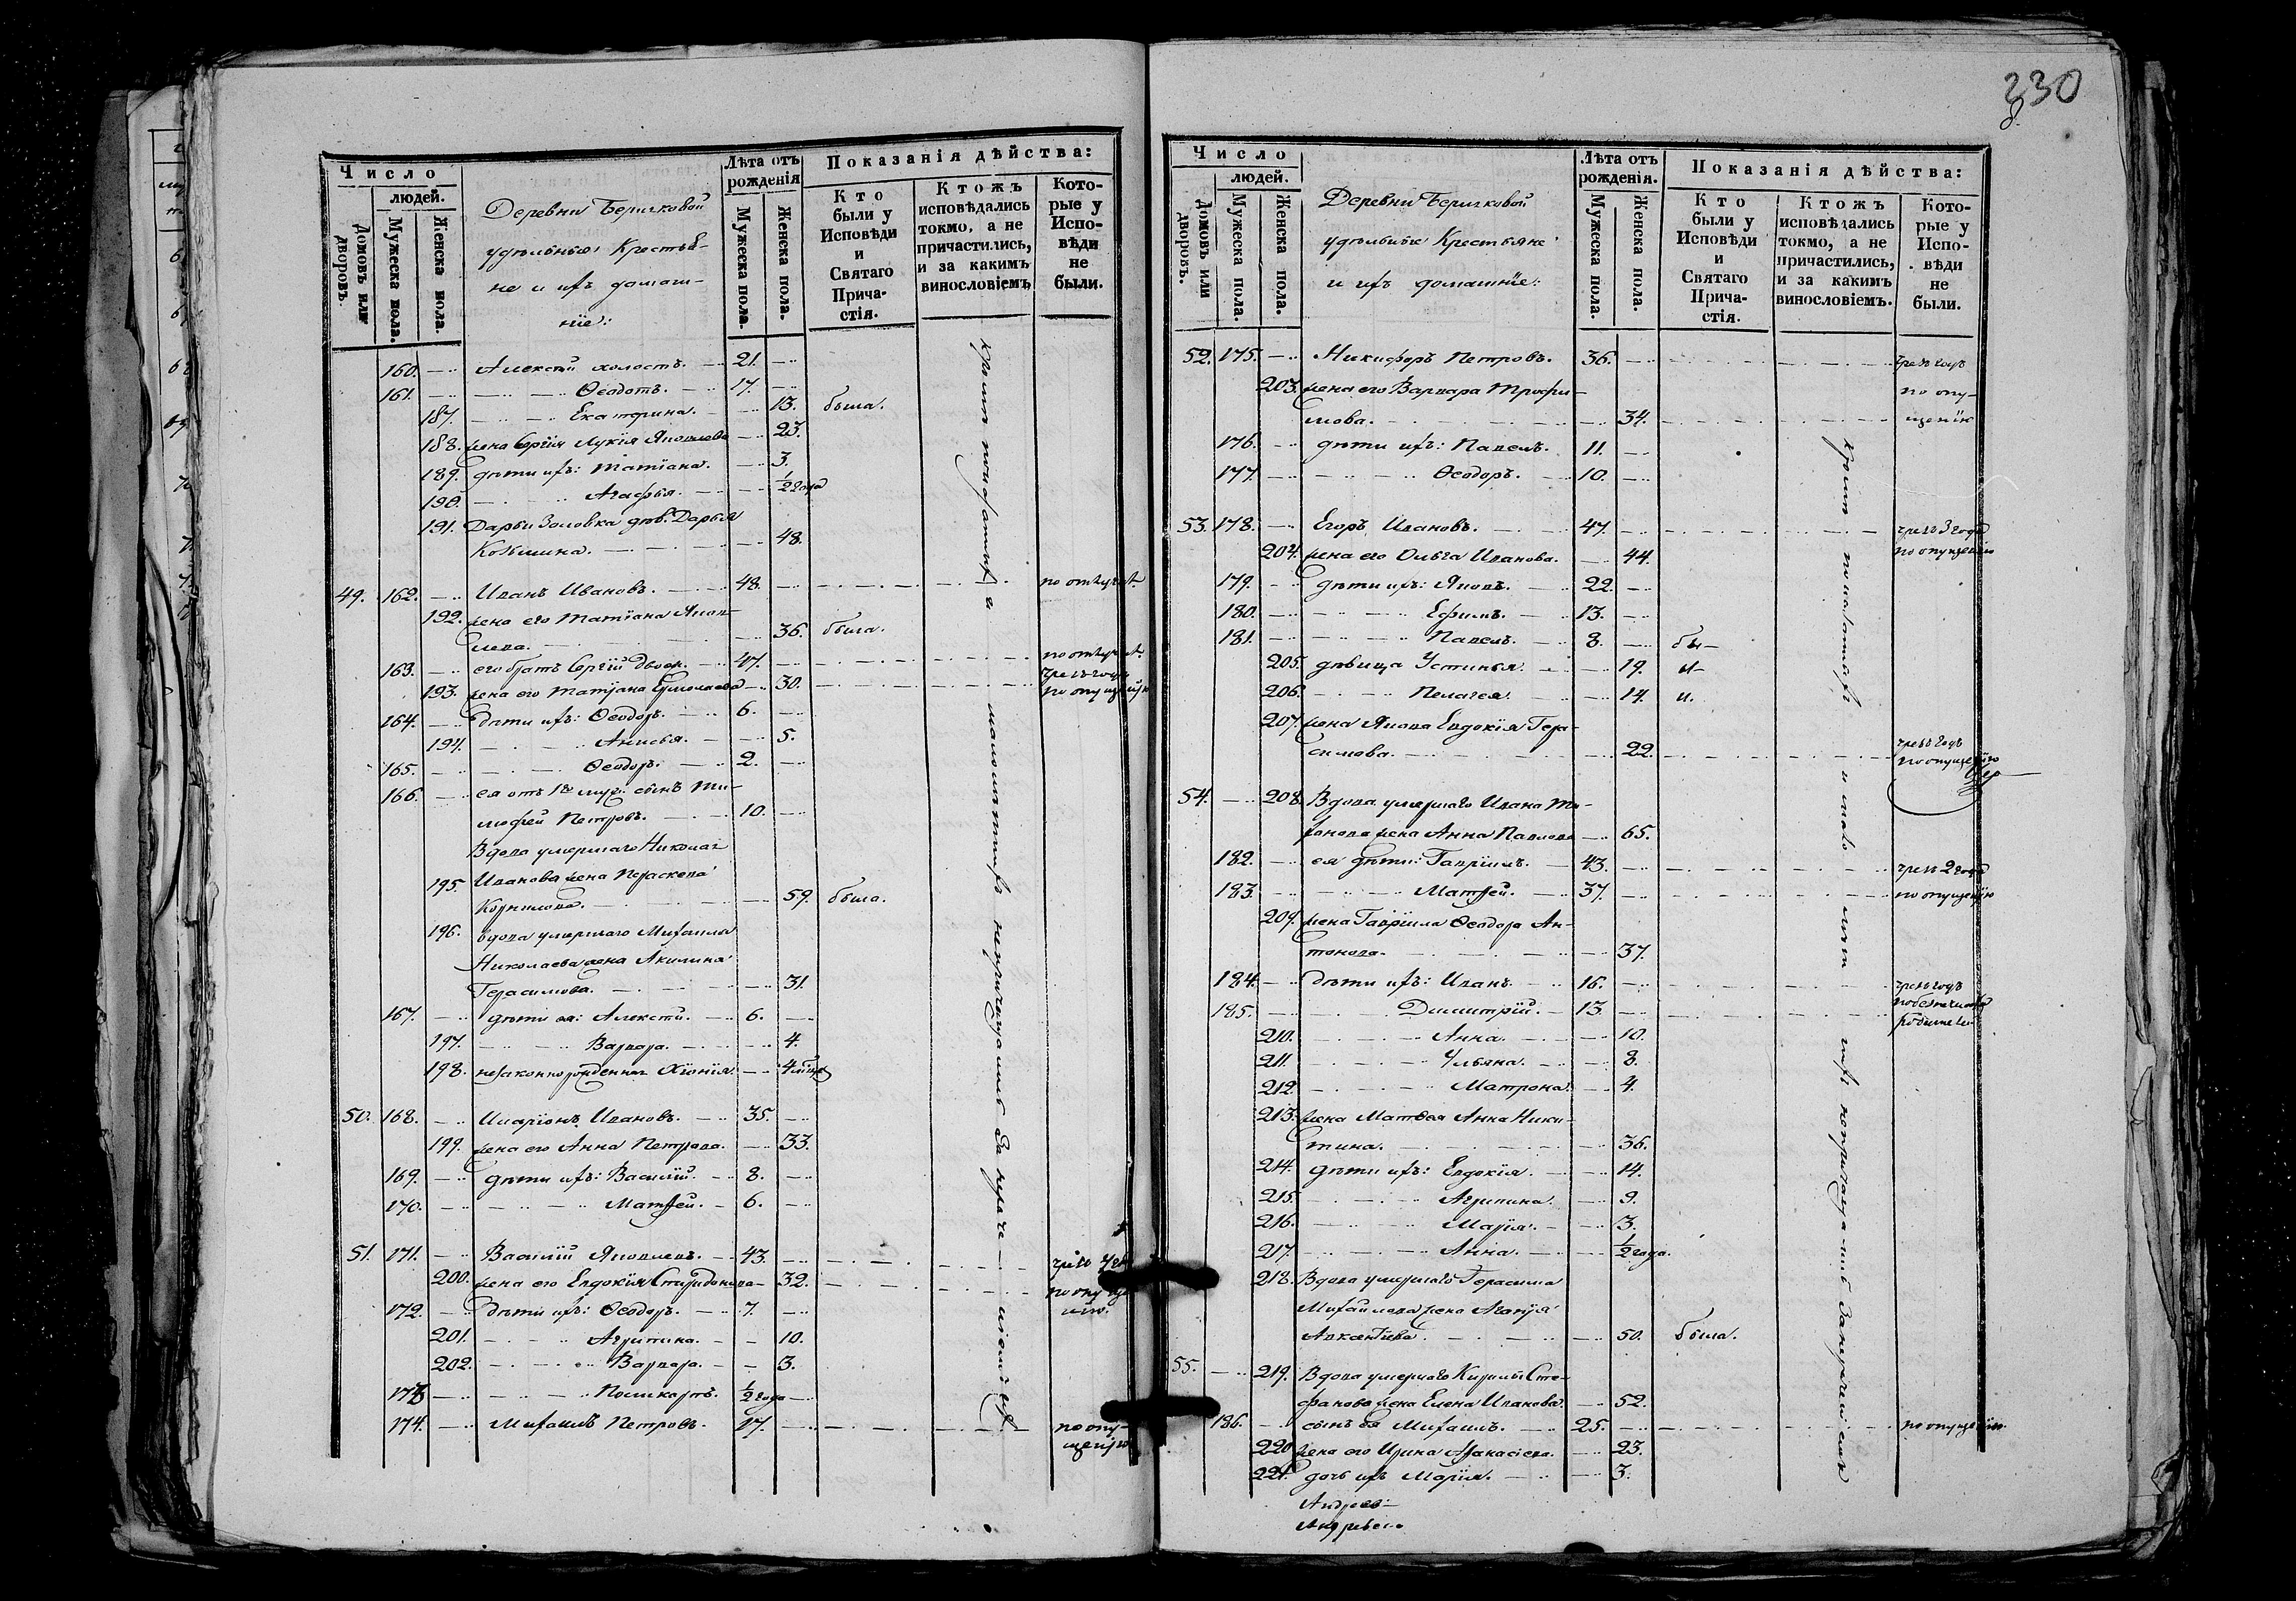 330
Число
людей.
Домовъ или дворовъ.
Мужеска пола.
Женска пола.
Деревни Беричковой
удѣльныя Крестья-
не и ихъ домаш-
ніе:
Лѣта отъ рожденія
Мужеска пола.
Женска пола.
Показанія дѣйства:
Кто были у Исповѣди и Святаго Причастія.
Ктожъ исповѣдались токмо, а не причастились, и за какимъ винословіемъ
Которые у Исповѣди не были.
160. Алексѣй холостъ. 21.
161. Ѳеодотъ. 17.
187. Екатерина. 13. была.
188. жена Сергія Лукія Яковлева 23.
189. дѣти ихъ: Татіана. 3.
190. Агафья. ½ года
191. Дарьи Золовка дѣв. Дарья
Козьмина. 48.
49. 162. Иванъ Ивановъ. 48.
192. жена его Татіана Яков-
лева. 36. была.
163. его брать Сергій двоен. 47.
193. жена его Татіана Ермолаева 30. чрезъ годъ по опущенію
164. дѣти ихъ: Ѳеодоръ. 6.
194. Анисья. 5.
165. Ѳеодоръ. 2.
166. ея отъ 1го мужа сынъ Ти-
моѳей Петровъ. 10.
Вдова умершаго Николая
195. Иванова жена Параскева
Корнилова. 59. была.
196. вдова умершаго Михаила
Николаева жена Акилина
Герасимова. 31.
167. дѣти ея: Алексѣй. 6.
197. Варвара. 4.
198. незаконнорожденная Хіонія. 4
50. 168. Иларіонъ Ивановъ. 35.
199. жена его Анна Петрова. 33.
169. дѣти ихъ: Василій. 8.
170. Матѳей. 6.
51. 171. Василій Яковлевъ. 43.
200. жена его Евдокія Спиридонова 32. по опуще-
нію.
172. дѣти ихъ: Ѳеодоръ. 7.
201. Агрипина. 10.
202. Варвара. 3.
173 Поликарпъ. ½ года
174. Михаилъ Петровъ. 17. по опу-
щенію
Число
людей.
Домовъ или дворовъ.
Мужеска пола.
Женска пола.
Деревни Беричковой
удѣльные Крестьяне
и ихъ домашніе:
Лѣта отъ рожденія.
Мужеска пола.
Женска пола.
Показанія дѣйства:
Кто были у Исповѣди и Святаго Причастія.
Ктожъ исповѣдались токмо, а не причастились, и за какимъ винословіемъ.
Которые у Исповѣди не были.
52. 175. Никифоръ Петровъ. 36. чрезъ годъ
203. жена его Варвара Трофи- по опу-
мова. 34. щенію
176. дѣти ихъ: Павелъ. 11.
177. Ѳеодоръ. 10.
53. 178. Егоръ Ивановъ. 47. чрезъ 3 года
204. жена его Ольга Иванова. 44. по опущенію
179. дѣти ихъ: Яковъ. 22.
180. Ефимъ. 13.
181. Павелъ. 8. бы-
205. дѣвица Устинья. 19. л-
206. Пелагея. 14. и.
207. жена Якова Евдокія Гера-
симова. 22. чрезъ годъ
по опущенію
54. 208. Вдова умершаго Ивана
жена Анна Павлова 65.
182. ея дѣти: Гавріилъ. 43. чрезъ 2 года
183. Матѳей. 37. по опущенію
209. жена Гавріила Ѳеодора Ан-
тонова. 37.
184. дѣти ихъ: Иванъ 16. чрезъ годъ
185. Димитрій. 13.
210. Анна. 10.
211. Ульяна. 8.
212. Матрона. 4.
213. жена Матѳея Анна Ники-
тина. 36.
214. дѣти ихъ: Евдокія. 14.
215. Агрипина. 9.
216. Марія. 3.
217. Анна. ½ года.
218. Вдова умершаго Герасима
Михайлова жена
50. была.
55. 219. Вдова умершаго Кирилы Сте-
фанова жена Елена Иванова. 52.
186. сынъ ея Михаилъ. 25. по опущенію.
220. жена его Ирина Аѳанасіева. 23.
221. дочь ихъ Марія. 3.